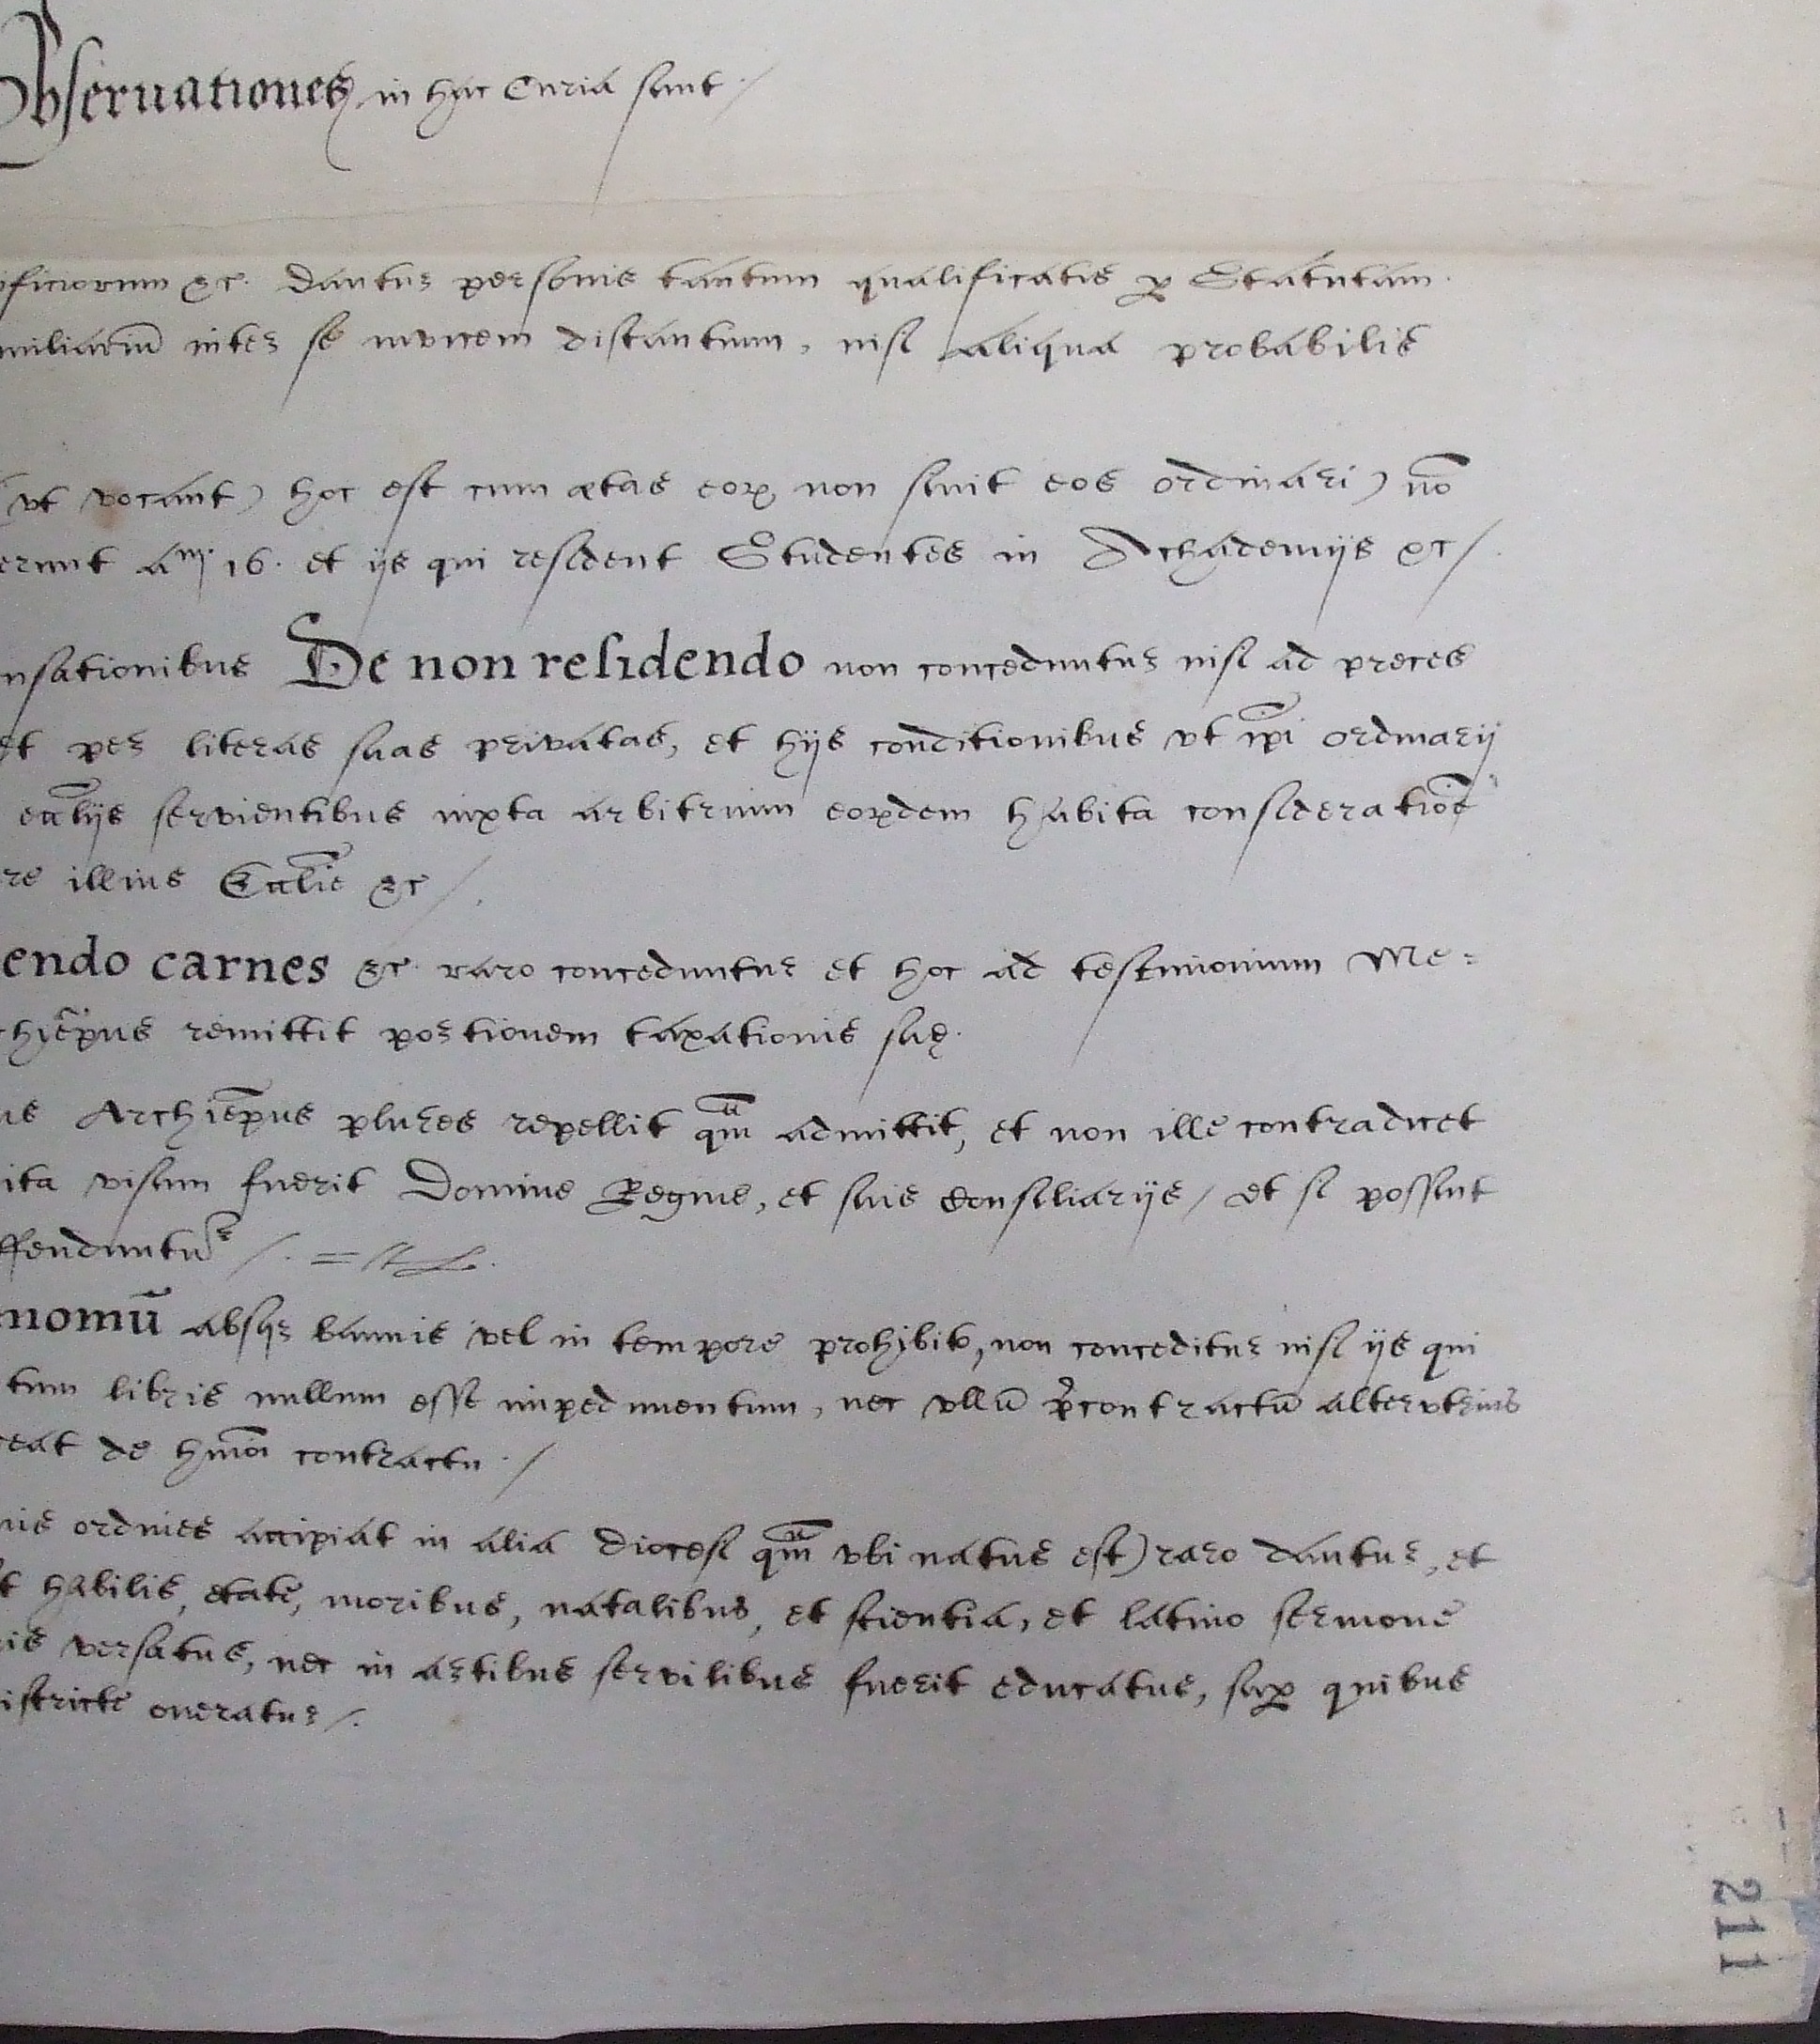 Obseruationes in hac Curia sunt /
ificiorum &c. Dantur personis tantum qualificatis ꝑ Statutam.
miliariū inter se invicem distantum, nisi aliqua probabilis
(vt vocant) hoc est cum ætas eoꝝ non sinit eos ordinari) nō
erunt anj. 16. et ijs qui resident Studentes in Achademijs &c /.
nsationibus De non residendo non conceduntur nisi ad preces
et per literas suas privatas, et hijs conditionibus vt ip̄i ordinarij
eccl̄ijs servientibus iuxta arbitrium eoꝝdem habita consideratiōe
re illius Eccl̄ie &c /.
endo carnes &c. raro conceduntur et hoc ad testimonium Me=
chiep̄us remittit portionem taxationis suę.
us Archiep̄us plures repellit qm̄ admittit, et non ille contradicet
ita visum fuerit Domine Regine, et suis Consiliarijs / et si possint
ffenduntur /.
nomiū absqꝫ bannis vel in tempore prohibito, non conceditur nisi ijs qui
tum libris nullum esse impedimentum, nec vllū p̄contractū alterutrius
ceat de hmōi contractu. /
nis ordines accipiat in alia diocesi qm̄ vbi natus est) raro dantur, et
t habilis, etate, moribus, natalibus, et scientia, et latino sermone
ris versatus, nec in artibus servilibus fuerit educatus, suꝑ quibus
istricte oneratur /.
211